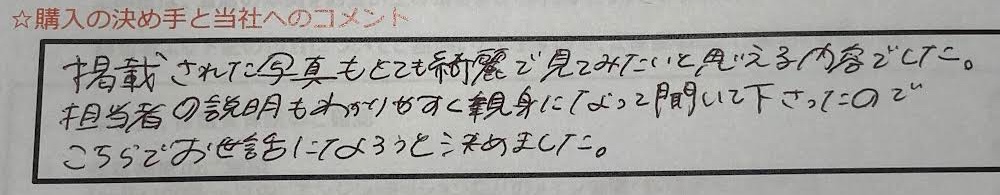 ☆購入の決め手と当社へのコメント
掲載された写真もとても綺麗で見てみたいと思える内容でした。
担当者の説明もわかりやすく親身になって聞いて下さったので
こちらでお世話になろうと決めました。